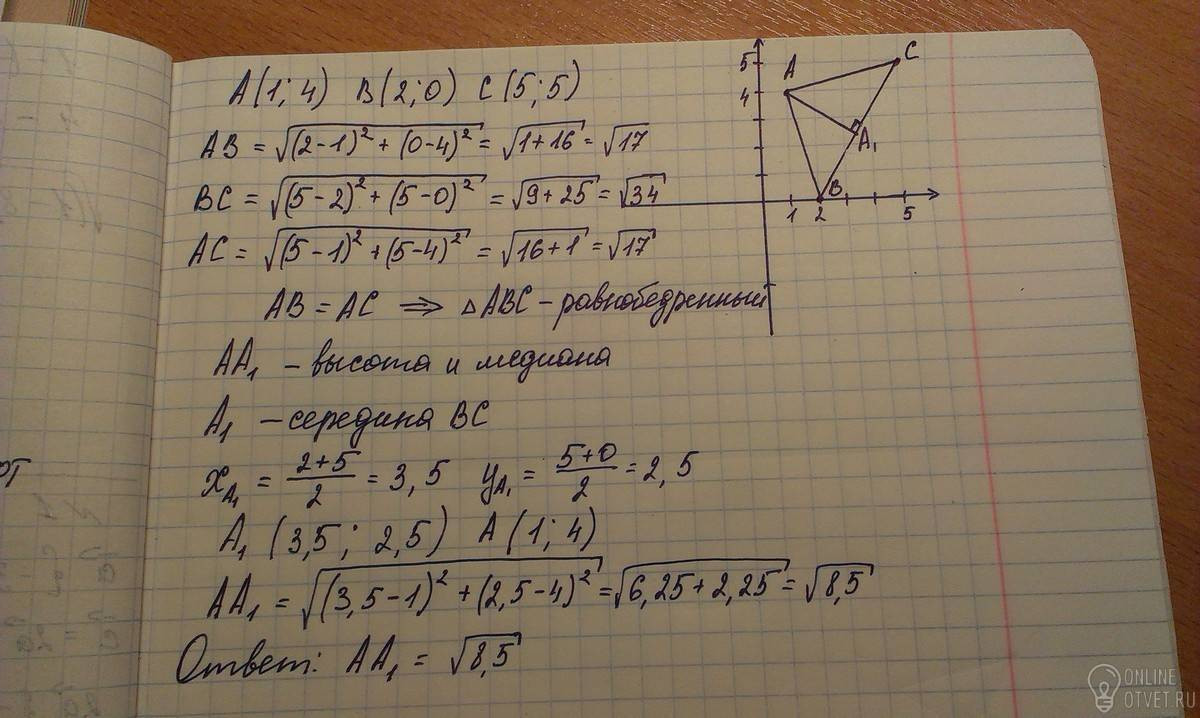 A(1; 4) B(2; 0) C(5; 5)
AB = √((2-1)² + (0-4)²) = √(1+16) = √17
BC = √((5-2)² + (5-0)²) = √(9+25) = √34
AC = √((5-1)² + (5-4)²) = √(16+1) = √17
AB = AC ⇒ △ABC - равнобедренный
AA₁ - высота и медиана
A₁ - середина BC
x_A₁ = (2+5)/2 = 3,5 y_A₁ = (5+0)/2 = 2,5
A₁ (3,5; 2,5) A(1; 4)
AA₁ = √((3,5-1)² + (2,5-4)²) = √(6,25+2,25) = √8,5
Ответ: AA₁ = √8,5
5
4
A
C
A₁
B
1 2 5
ONLINE
OTVET.RU